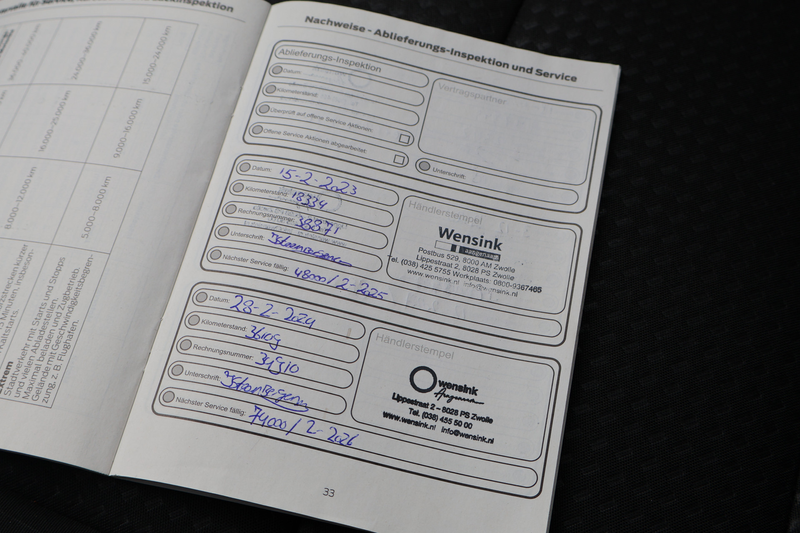 inspektion
24.000–36.000 km
15.000–24.000 km
16.000–25.000 km
9.000–16.000 km
8.000–12.000 km
5.000–8.000 km
Stadtverkehr mit Starts und Stopps
und vielen Abladestellen.
Maximal beladen und Zugbetrieb.
Gelände mit Geschwindigkeitsbegren-
zung, z. B. Flughafen.
Nachweise - Ablieferungs-Inspektion und Service
Ablieferungs-Inspektion
Datum:
Kilometerstand:
Überprüft auf offene Service Aktionen:
Offene Service Aktionen abgearbeitet:
Vertragspartner
Unterschrift:
Datum: 15-2-2023
Kilometerstand: 18334
Rechnungsnummer: 38871
Unterschrift:
Nächster Service fällig: 48000/2-2025
Händlerstempel
Wensink
Postbus 529, 8000 AM Zwolle
Lippestraat 2, 8028 PS Zwolle
Tel. (038) 425 5755 Workplaats: 0800-9367465
www.wensink.nl info@wensink.nl
Datum: 28-2-2024
Kilometerstand:
Rechnungsnummer:
Unterschrift:
Nächster Service fällig: 74000/2-2026
Händlerstempel
wensink
Lippestraat 2 – 8028 PS Zwolle
Tel. (038) 455 50 00
www.wensink.nl info@wensink.nl
33